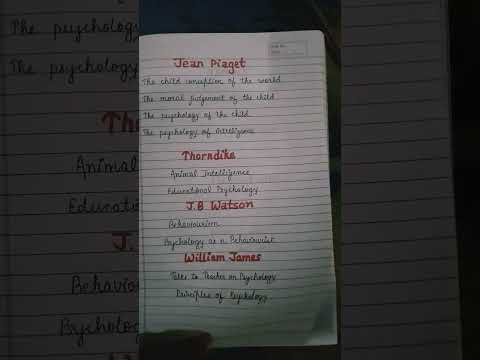 Jean Piaget
The child conception of the world
The moral judgement of the child
The psychology of the child
The psychology of intelligence
Thorndike
Animal Intelligence
Educational Psychology
J.B Watson
Behaviourism
Psychology as a Behaviourist
William James
Talks to Teacher on Psychology
Principles of Psychology